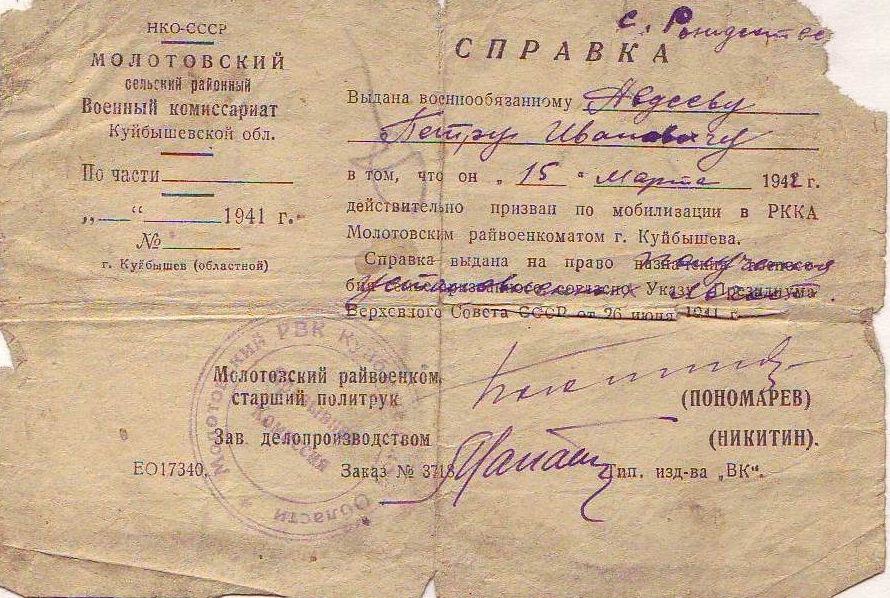 НКО-СССР
МОЛОТОВСКИЙ
сельский районный
Военный комиссариат
Куйбышевской обл.
По части
„ “ 1941 г.
№
г. Куйбышев (областной)
с. Рождестве
СПРАВКА
Выдана военнообязанному Авдееву
Петру Ивановичу
в том, что он „ 15 “ марта 1942 г.
действительно призван по мобилизации в РККА
Молотовским райвоенкоматом г. Куйбышева.
Справка выдана на право назначения получения
установленных льгот согласно Указу Президиума
Верховного Совета СССР от 26 июня 1941 г.
Молотовский райвоенком,
старший политрук
(ПОНОМАРЕВ)
Зав. делопроизводством
(НИКИТИН).
ЕО17340.
Заказ № 3718
Тип. изд-ва „ВК“.
Молотовский РВК Куйб
Области
комиссия